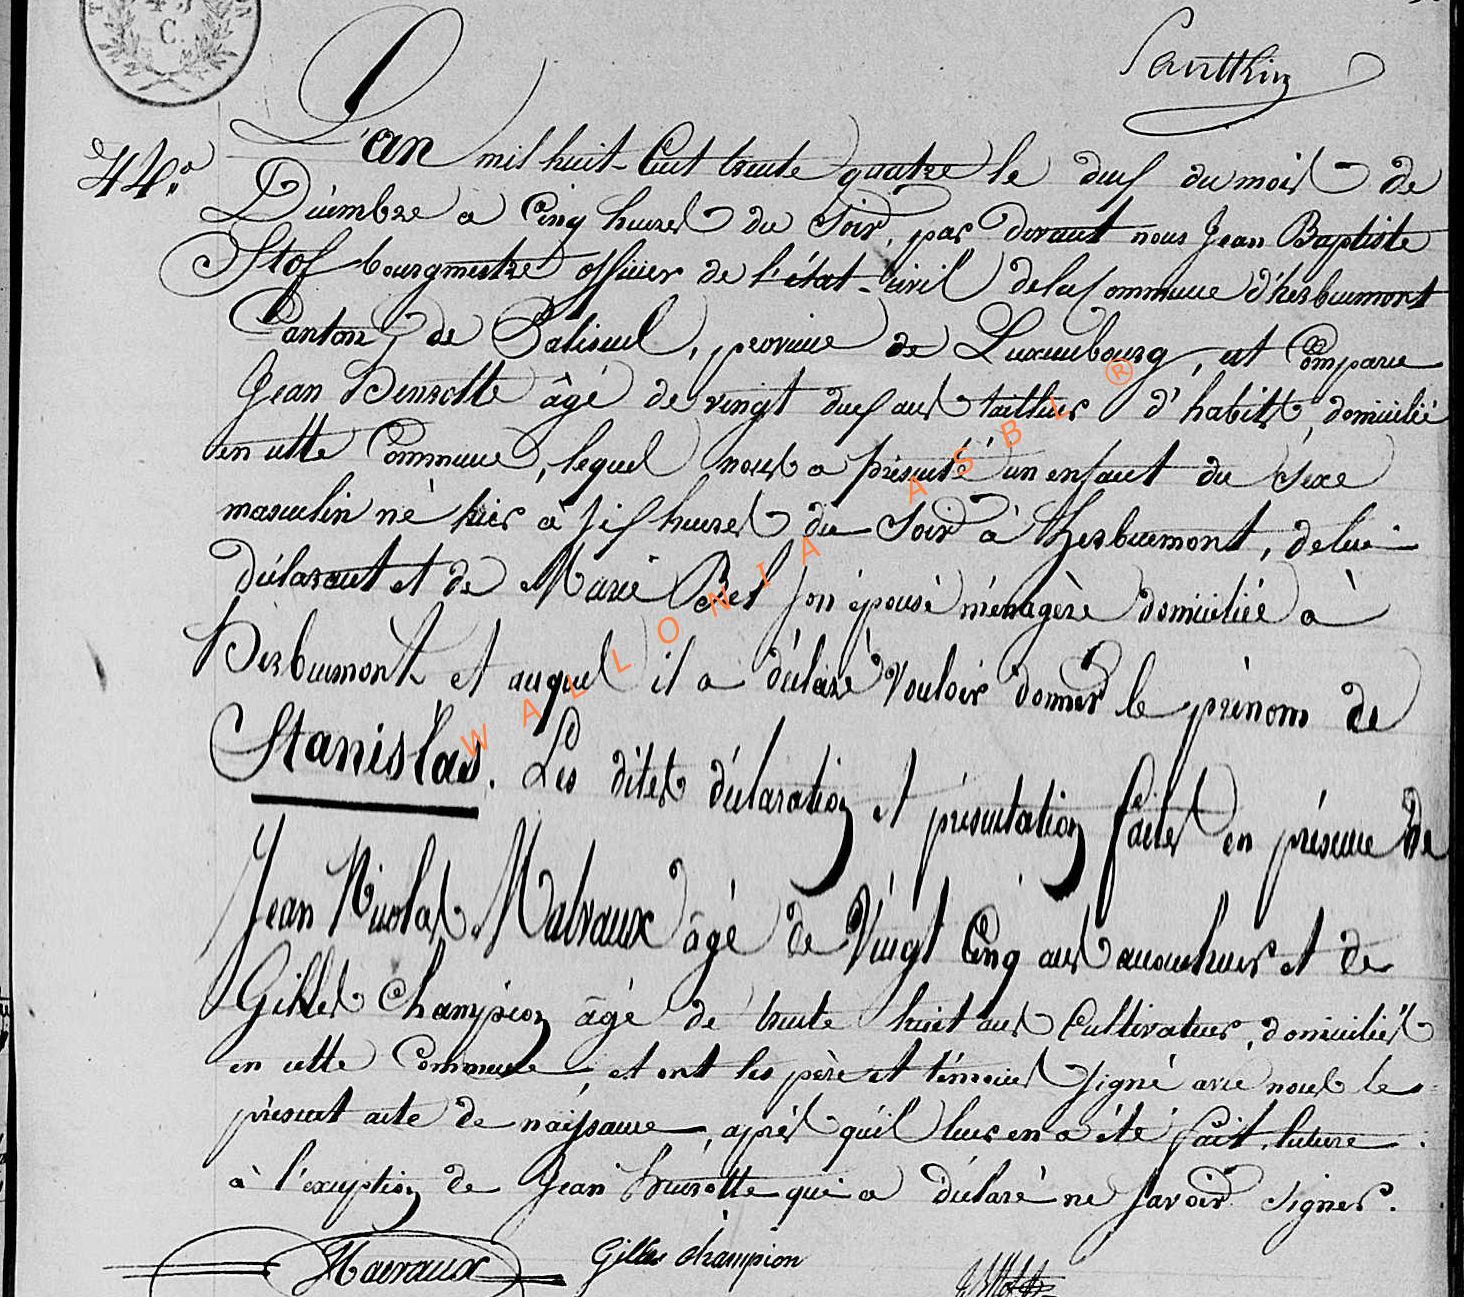 C.
44.°
L'an mil huit-Cent trente quatre le deux du mois de
Décembre a Cinq heures du Soir, par devant nous Jean Baptiste
Stof bourgmestre officier de l'état-civil de la Commune d'herbeumont
Canton de Paliseul, province de Luxembourg, est Comparu
Jean Henrotte âgé de vingt deux ans tailleur d'habits, domicilié
en cette Commune, lequel nous a présenté un enfant du Sexe
masculin né hier à six heures du Soir à herbeumont, de lui
déclarant et de Marie Bes son épouse ménagère domiciliée à
Herbeumont et auquel il a déclaré Vouloir donner le prénom de
Stanislas. Les dites déclaration et présentation faites en présence de
Jean Nicolas Malvaux âgé de Vingt Cinq ans accoucheur et de
Gilles Champion âgé de trente huit ans Cultivateur, domiciliés
en cette Commune, et ont les père et témoins signé avec nous le
présent acte de naissance, après qu'il leur en a été fait lecture
à l'exception de Jean henrotte qui a déclaré ne savoir signer.
Malvaux Gilles champion
WALLONIA ASBL ®